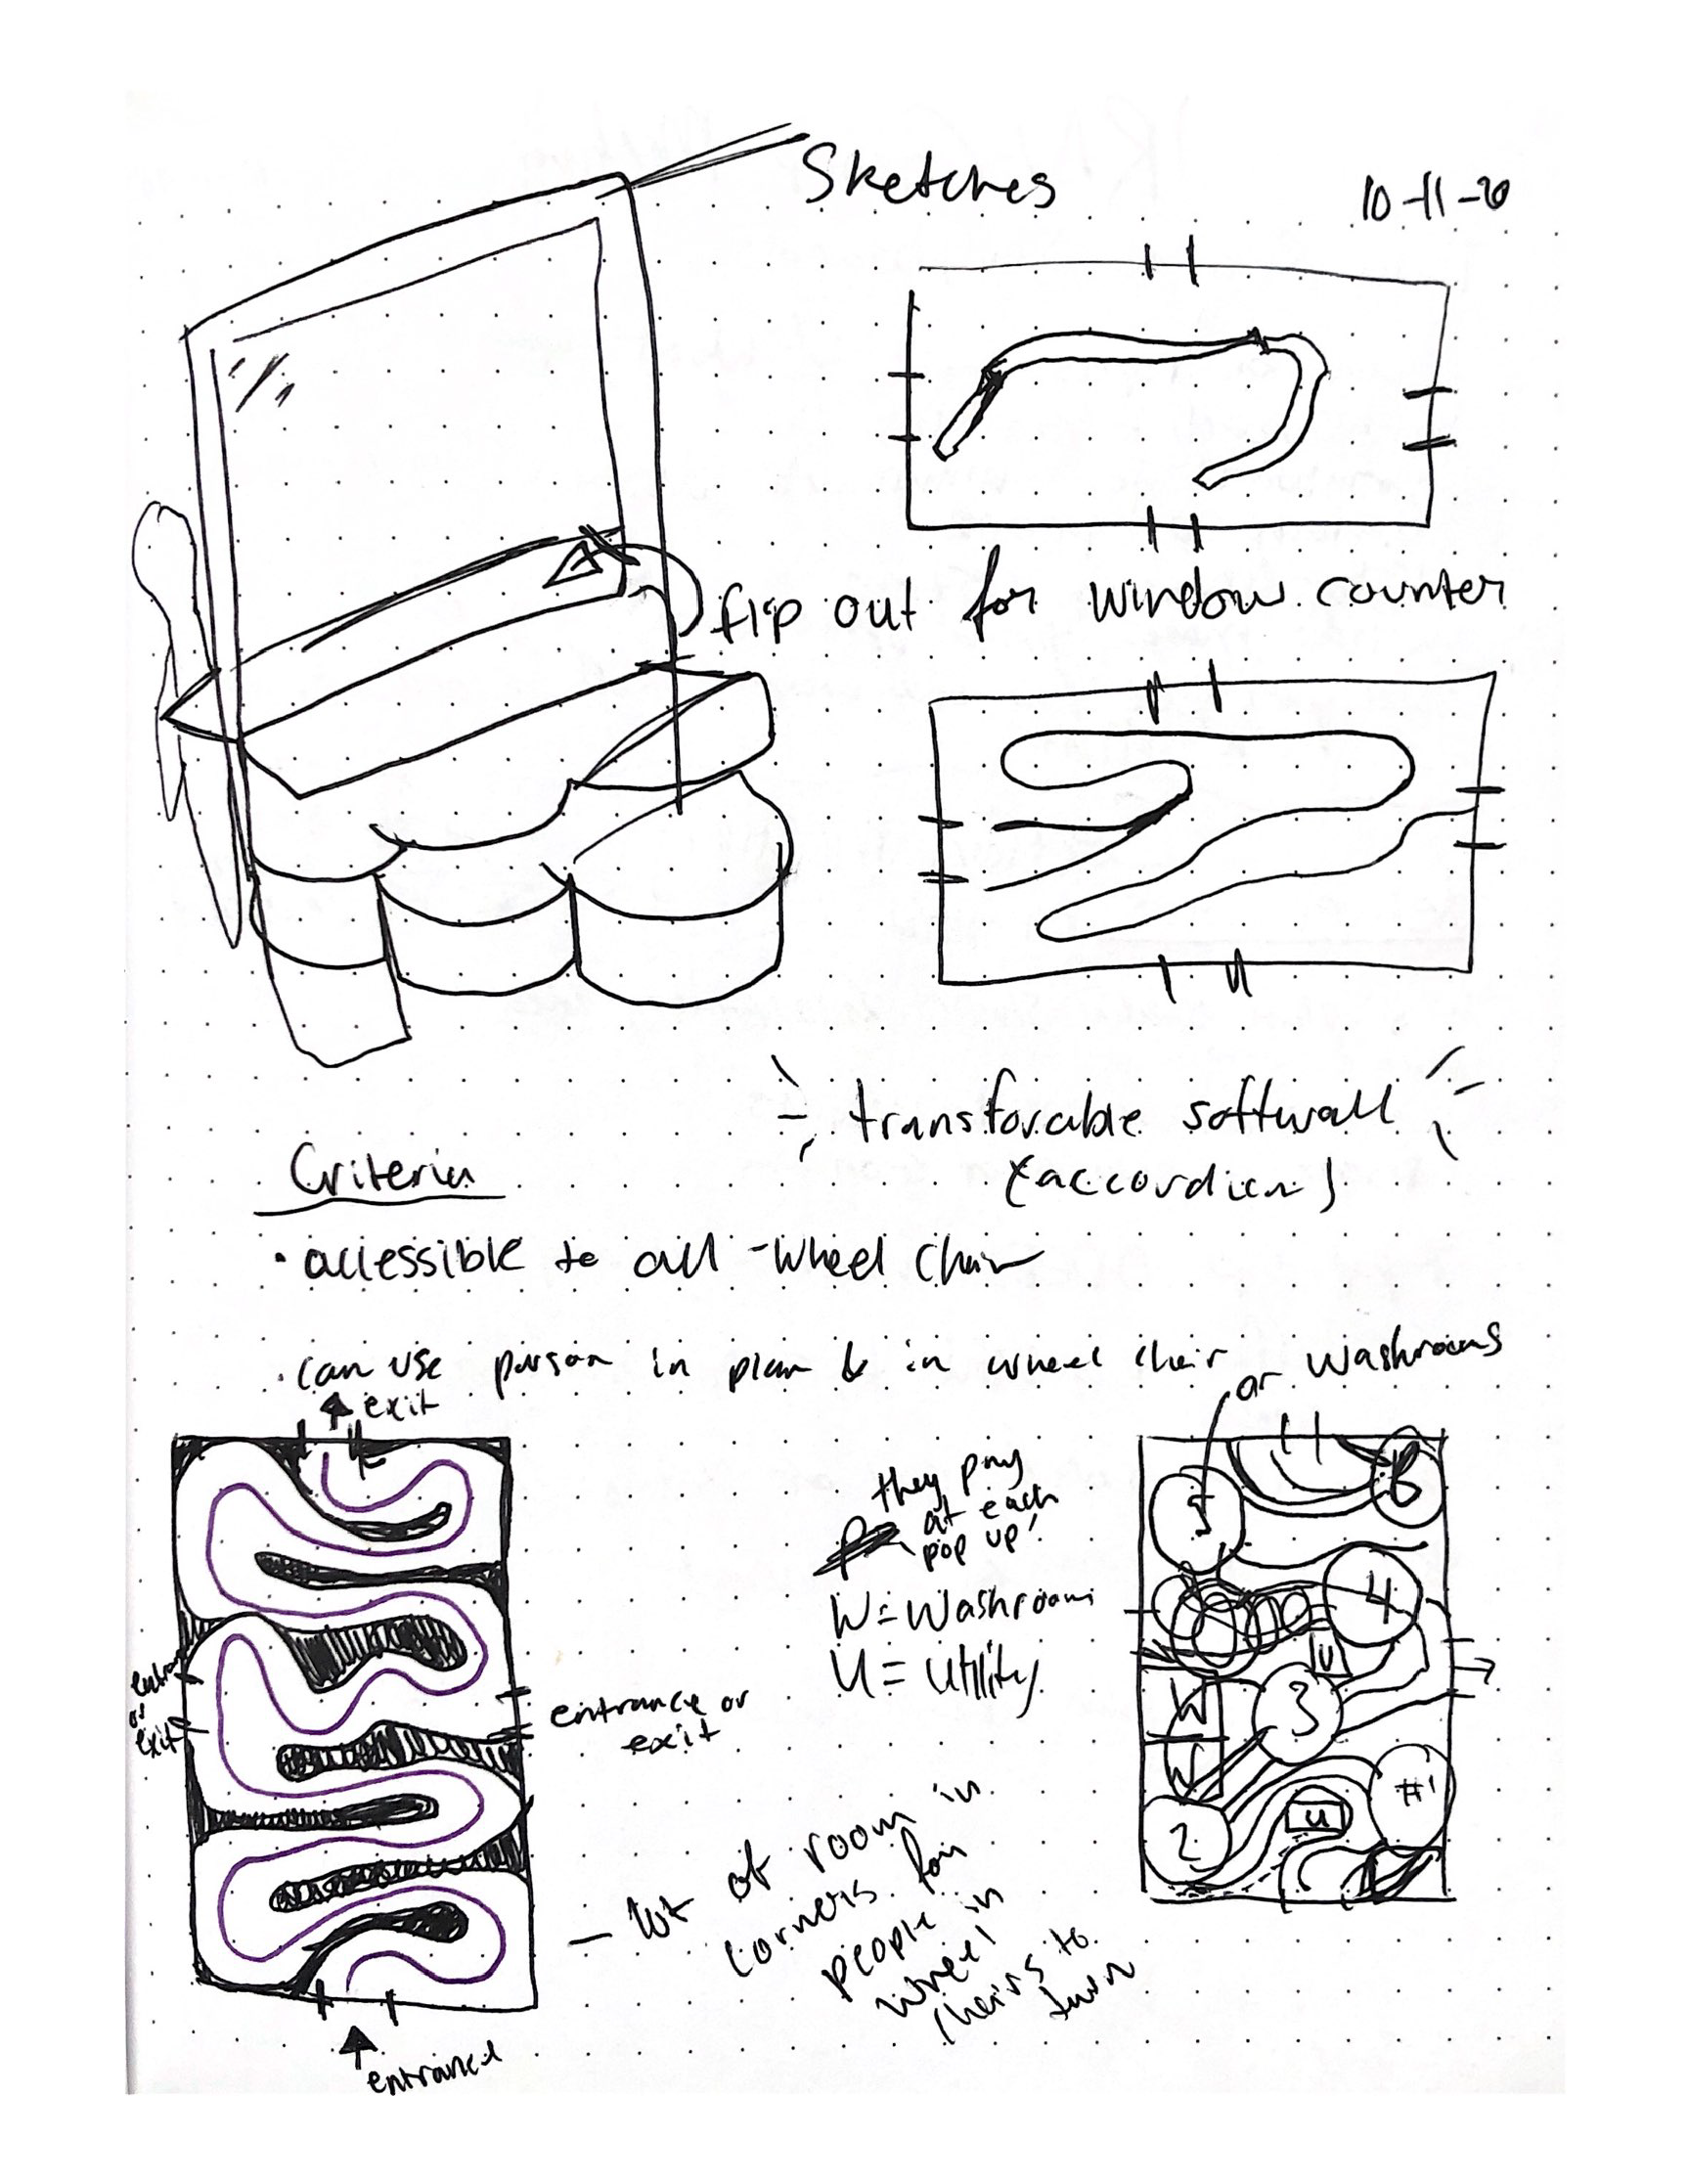 Sketches
10-11-20
flip out for window counter
transforable softwall
(accordian)
Criteria
• accessible to all - wheel chair
• can use person in plan & in wheel chair
or washrooms
exit
they pay
at each
pop up!
W = Washroom
U = Utility
entrance or
exit
entrance
or
exit
- lot of room in
corners for
people in
wheel
chairs to
turn
entrance
5
6
4
U
3
W
W
#1
U
2